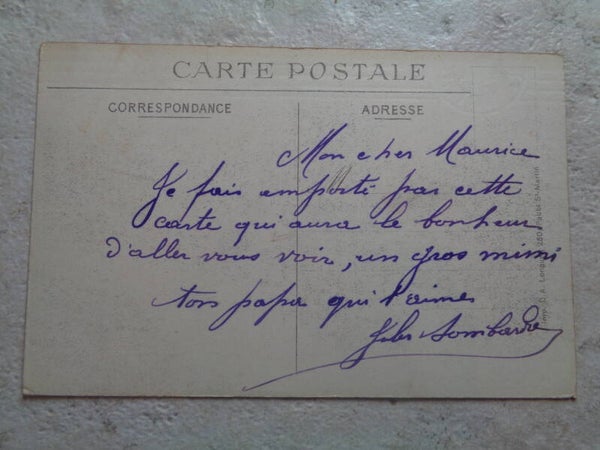 CARTE POSTALE
CORRESPONDANCE
ADRESSE
Mon cher Maurice
Je fais emporté par cette
carte qui aura le bonheur
d'aller vous voir, un gros mimi
ton papa qui t'aime
Imp. D. A. St-Martin